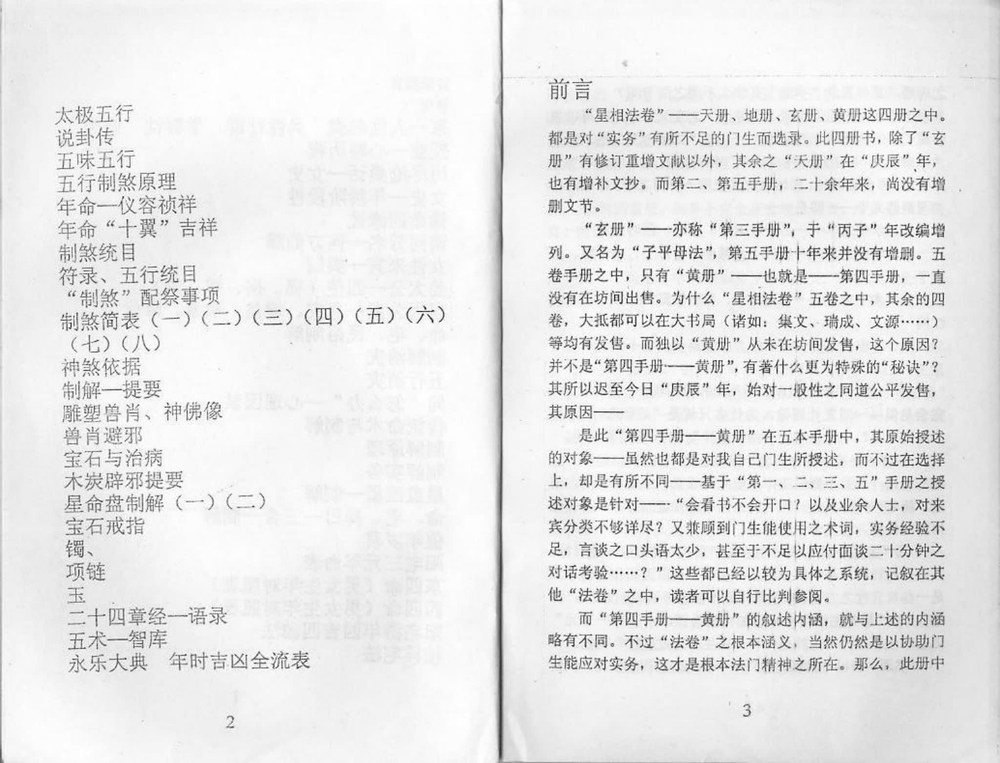 太极五行
说卦传
五味五行
五行制煞原理
年命—仪容祯祥
年命“十翼”吉祥
制煞统目
符录、五行统目
“制煞”配祭事项
制煞简表（一）（二）（三）（四）（五）（六）
（七）（八）
神煞依据
制解—提要
雕塑兽肖、神佛像
兽肖避邪
宝石与治病
木炭辟邪提要
星命盘制解（一）（二）
宝石戒指
镯、
项链
玉
二十四章经—语录
五术—智库
永乐大典　年时吉凶全流表
2
前言
“星相法卷”——天册、地册、玄册、黄册这四册之中。
都是对“实务”有所不足的门生而选录。此四册书，除了“玄
册”有修订重增文献以外，其余之“天册”在“庚辰”年，
也有增补文抄。而第二、第五手册，二十余年来，尚没有增
删文节。
“玄册”——亦称“第三手册”，于“丙子”年改编增
列。又名为“子平母法”，第五手册十年来并没有增删。五
卷手册之中，只有“黄册”——也就是——第四手册，一直
没有在坊间出售。为什么“星相法卷”五卷之中，其余的四
卷，大抵都可以在大书局（诸如：集文、瑞成、文源……）
等均有发售。而独以“黄册”从未在坊间发售，这个原因？
并不是“第四手册——黄册”，有著什么更为特殊的“秘诀”？
其所以迟至今日“庚辰”年，始对一般性之同道公平发售，
其原因——
是此“第四手册——黄册”在五本手册中，其原始授述
的对象——虽然也都是对我自己门生所授述，而不过在选择
上，却是有所不同——基于“第一、二、三、五”手册之授
述对象是针对——“会看书不会开口？以及业余人士，对来
宾分类不够详尽？又兼顾到门生能使用之术词，实务经验不
足，言谈之口头语太少，甚至于不足以应付面谈二十分钟之
对话考验……？”这些都已经以较为具体之系统，记叙在其
他“法卷”之中，读者可以自行比判参阅。
而“第四手册——黄册”的叙述内涵，就与上述的内涵
略有不同。不过“法卷”之根本涵义，当然仍然是以协助门
生能应对实务，这才是根本法门精神之所在。那么，此册中
3